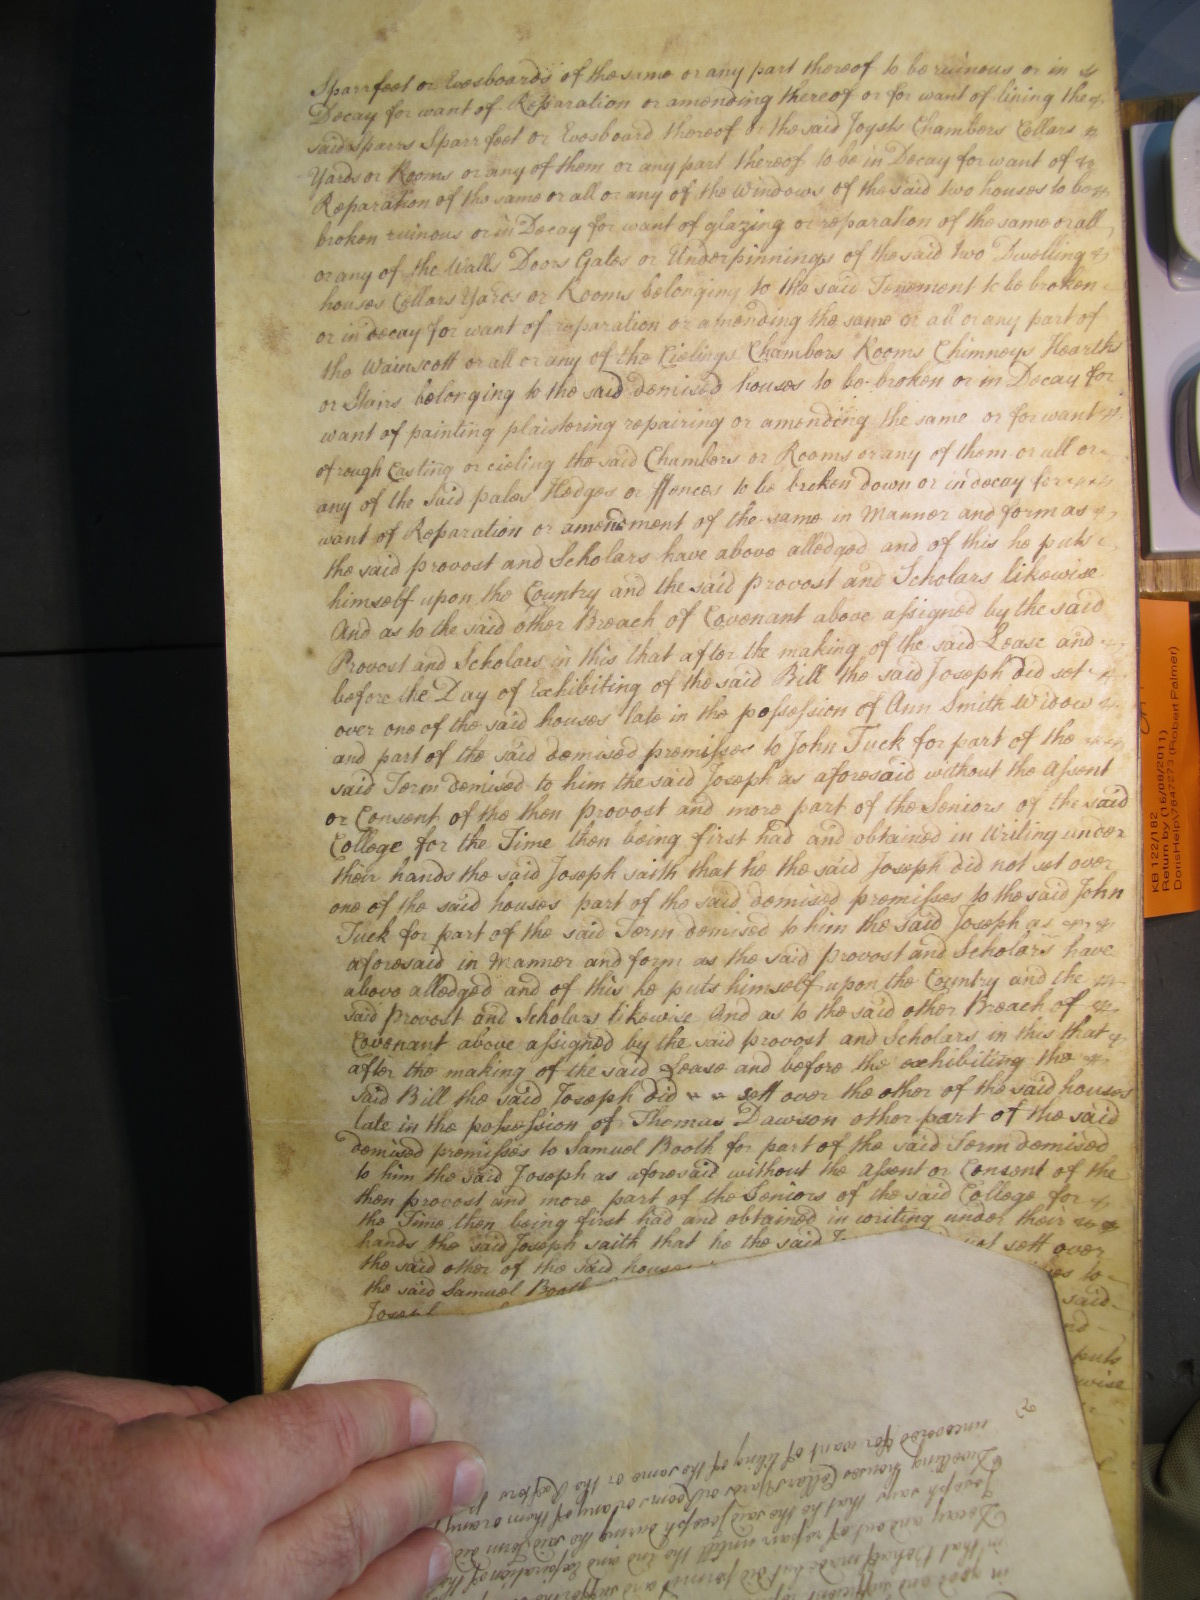 Sparrfeet or Evesboards of the same or any part thereof to be ruinous or in
Decay for want of Reparation or amending thereof or for want of lining the
said Sparrs Sparrfeet or Evesboard thereof or the said Joysts Chambers Cellars
Yards or Rooms or any of them or any part thereof to be in Decay for want of
Reparation of the same or all or any of the Windows of the said two houses to be
broken ruinous or in Decay for want of glazing or reparation of the same or all
or any of the Walls Doors Gates or Underpinnings of the said two Dwelling
houses Cellars Yards or Rooms belonging to the said Tenement to be broken
or in decay for want of reparation or amending the same or all or any part of
the Wainscott or all or any of the Cielings Chambers Rooms Chimneys Hearths
or Stairs belonging to the said demised houses to be broken or in Decay for
want of painting plaistering repairing or amending the same or for want
of rough Casting or cieling the said Chambers or Rooms or any of them or all or
any of the said pales Hedges or ffences to be broken down or in decay for
want of Reparation or amendment of the same in Manner and form as
the said Provost and Scholars have above alledged and of this he puts
himself upon the Country and the said Provost and Scholars likewise
And as to the said other Breach of Covenant above assigned by the said
Provost and Scholars in this that after the making of the said Lease and
before the Day of exhibiting of the said Bill the said Joseph did set
over one of the said houses late in the possession of Ann Smith Widow
and part of the said demised premisses to John Tuck for part of the
said Term demised to him the said Joseph as aforesaid without the Assent
or Consent of the then Provost and more part of the Seniors of the said
College for the Time then being first had and obtained in Writing under
their hands the said Joseph saith that he the said Joseph did not set over
one of the said houses part of the said demised premisses to the said John
Tuck for part of the said Term demised to him the said Joseph as
aforesaid in Manner and form as the said Provost and Scholars have
above alledged and of this he puts himself upon the Country and the
said Provost and Scholars likewise And as to the said other Breach of
Covenant above assigned by the said Provost and Scholars in this that
after the making of the said Lease and before the exhibiting the
said Bill the said Joseph did sett over the other of the said houses
late in the possession of Thomas Dawson other part of the said
demised premisses to Samuel Booth for part of the said Term demised
to him the said Joseph as aforesaid without the Assent or Consent of the
then Provost and more part of the Seniors of the said College for
the Time then being first had and obtained in writing under their
hands the said Joseph saith that he the said not sett over
the said other of the said houses to
the said Samuel Booth said
Joseph
puts
KB 122/182
Return by (16/08/2011)
DorisHelpv7847273 (Robert Palmer)
uncovered for want of tiling of the same or the Rafters
Dwelling houses Cellars Yards or Rooms or any of them or any
Joseph says that he the said Joseph during the said Term did
Decay and out of repair untill the End and Expiration of the
in that behalf made but did permit and
in good and sufficient